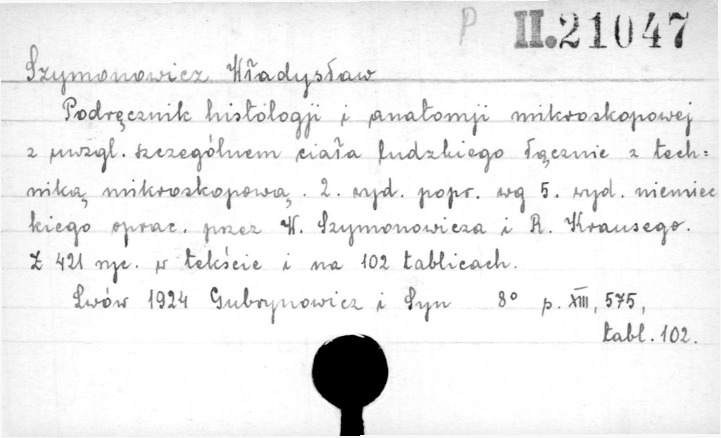 P II.21047
Szymonowicz Władysław
Podręcznik histologji i anatomji mikroskopowej
z uwzgl. szczególnem ciała ludzkiego łącznie z tech=
niką mikroskopową. 2. wyd. popr. wg 5. wyd. niemiec
kiego oprac. przez W. Szymonowicza i R. Krausego.
Z 421 ryc. w tekście i na 102 tablicach.
Lwów 1924 Gubrynowicz i Syn 8° p. XIII, 575,
tabl. 102.